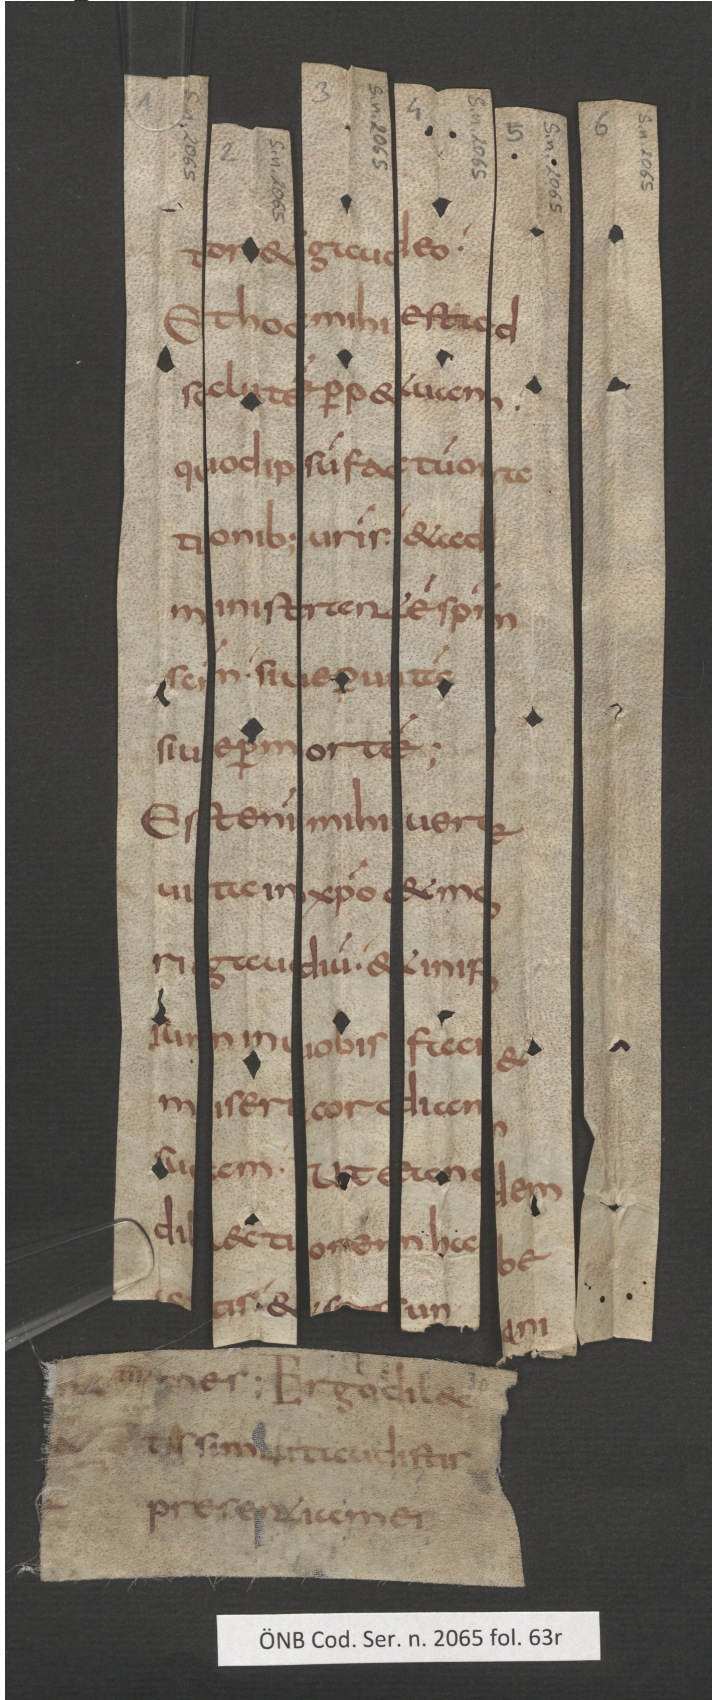 1 S.n. 2065
2 S.n. 2065
3 S.n. 2065
4 S.n. 2065
5 S.n. 2065
6 S.n. 2065
tor & gaudeo.
Et hoc mihi est ad
salutē p̄p&uam.
quod ipsū factū ora
tionib; ur̄is. & ad
ministrante sp̄m
sc̄m. siue p̄ uitā
siue p̄ mortē;
Est eni mihi uere
uita in xp̄o & mo
ri gaudiū. & in ip
sum in uobis faci&
misericordiam
suam. Ut eandem
dilectionem habe
atis. & sitis unani
mes; Ergo dilec
tissimi ut audistis
presentia mei
ÖNB Cod. Ser. n. 2065 fol. 63r